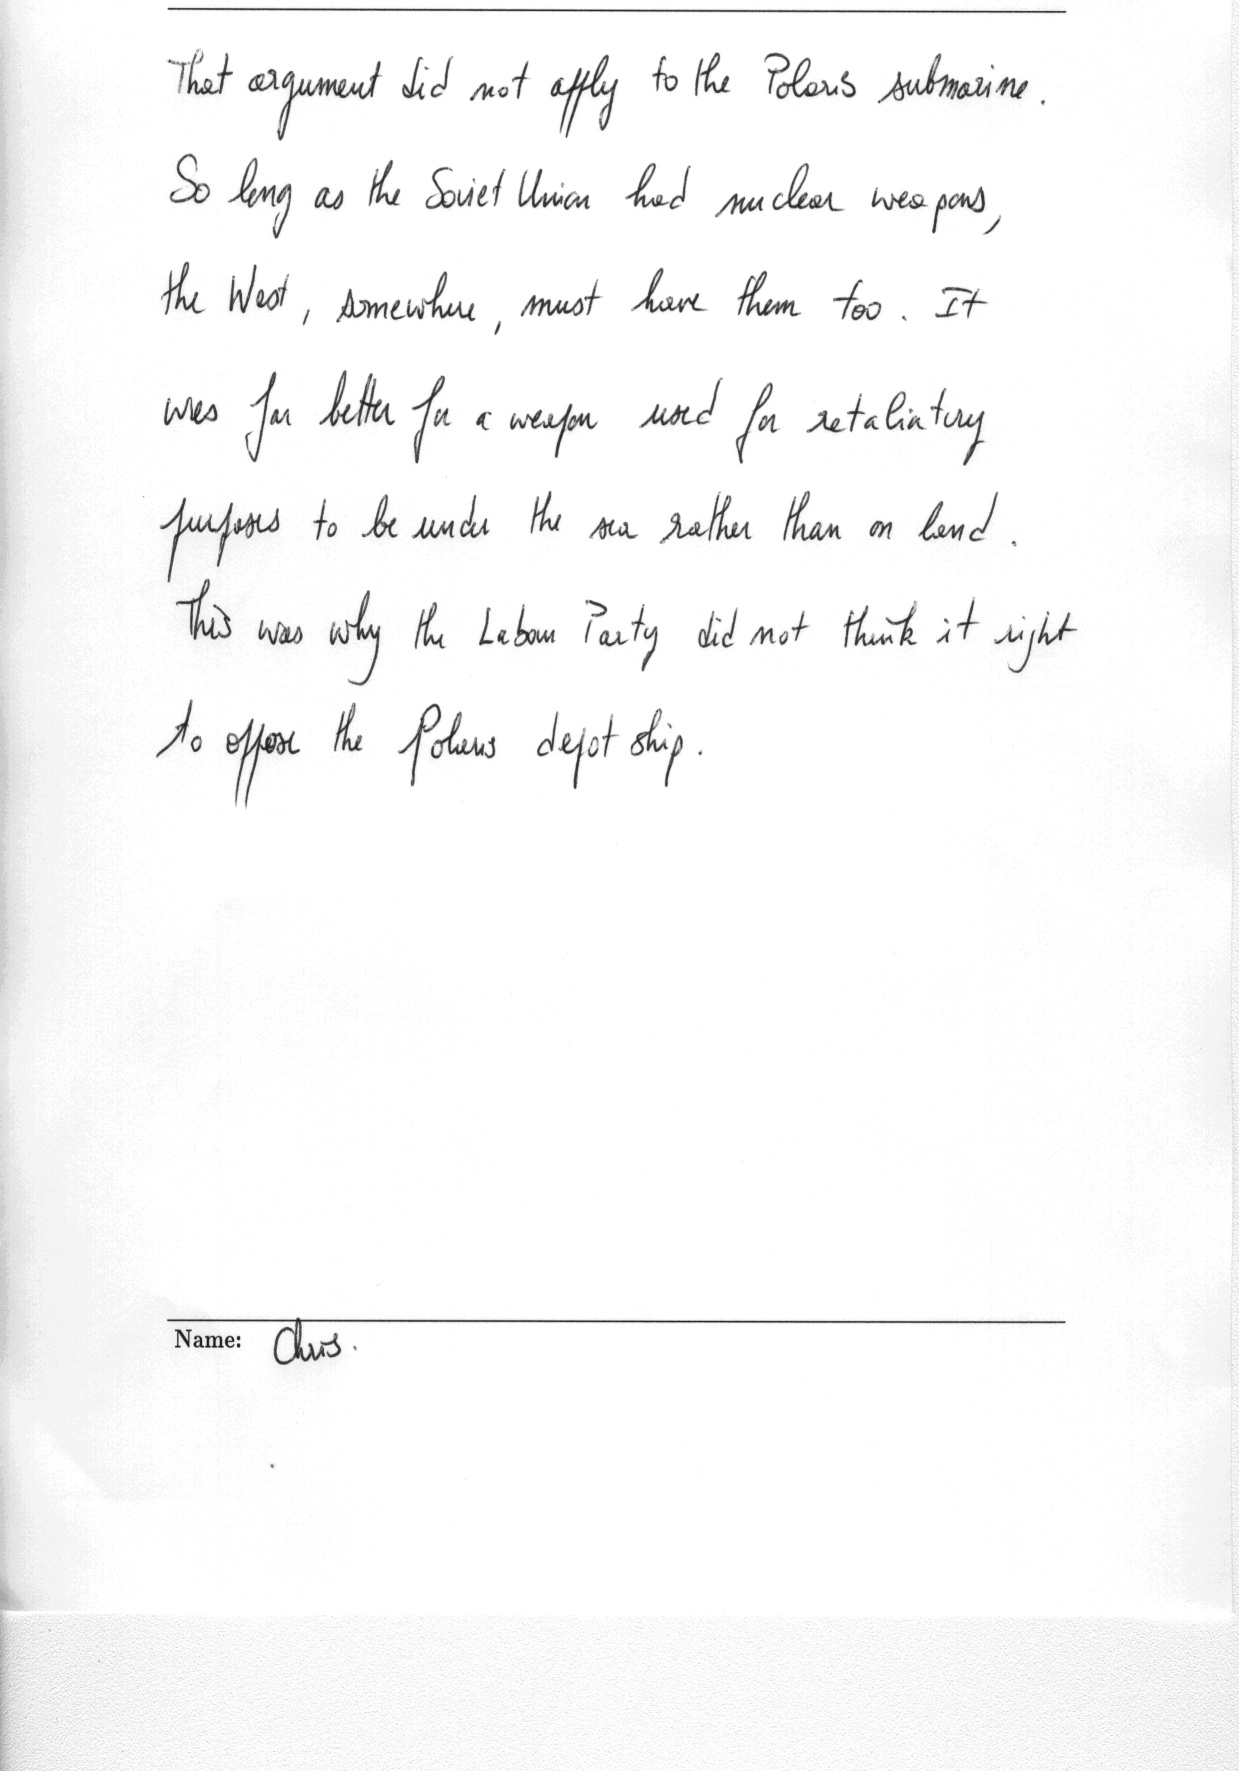 That argument did not apply to the Polaris submarine.
So long as the Soviet Union had nuclear weapons,
the West, somewhere, must have them too. It
was far better for a weapon used for retaliatory
purposes to be under the sea rather than on land.
This was why the Labour Party did not think it right
to oppose the Polaris depot ship.
Name: Chris.